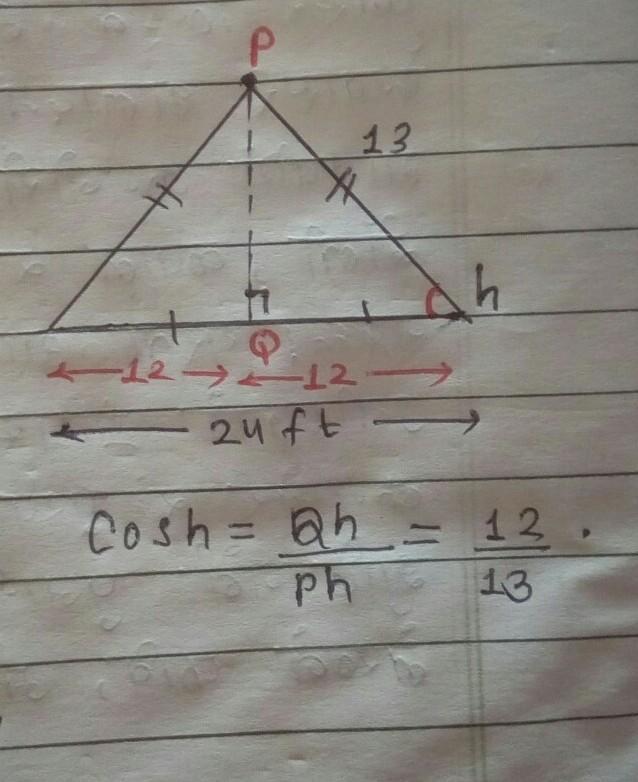 P
13
h
Q
12 12
24 ft
Cosh = Qh = 12 .
ph 13